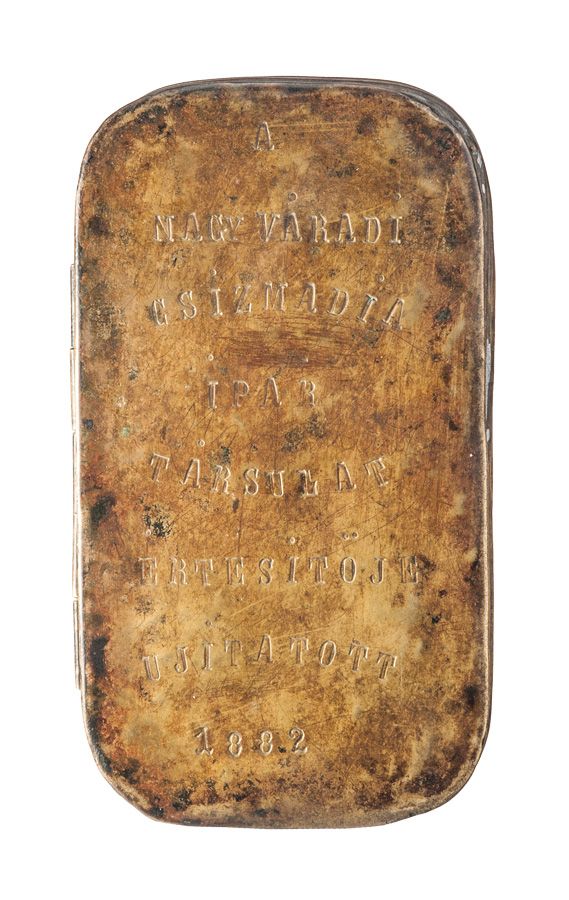 A
NAGY VÁRADİ
CSİZMADİA
İPÁR
TÁRSULAT
ÉRTESİTÖJE
UJİTATOTT
1882